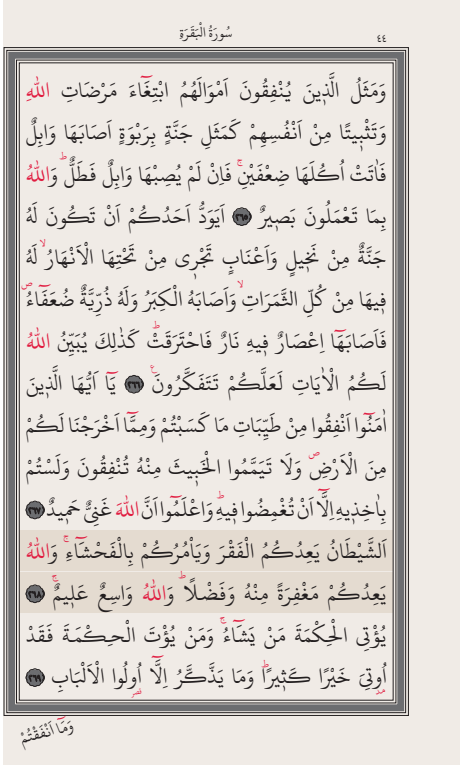 سُورَةُ الْبَقَرَةِ
٤٤
وَمَثَلُ الَّذِينَ يُنْفِقُونَ اَمْوَالَهُمُ ابْتِغَٓاءَ مَرْضَاتِ اللّٰهِ
وَتَثْبِيتًا مِنْ اَنْفُسِهِمْ كَمَثَلِ جَنَّةٍ بِرَبْوَةٍ اَصَابَهَا وَابِلٌ
فَاٰتَتْ اُكُلَهَا ضِعْفَيْنِۚ فَاِنْ لَمْ يُصِبْهَا وَابِلٌ فَطَلٌّۜ وَاللّٰهُ
بِمَا تَعْمَلُونَ بَصِيرٌ ﴿٢٦٥﴾ اَيَوَدُّ اَحَدُكُمْ اَنْ تَكُونَ لَهُ
جَنَّةٌ مِنْ نَخِيلٍ وَاَعْنَابٍ تَجْرِي مِنْ تَحْتِهَا الْاَنْهَارُۙ لَهُ
فِيهَا مِنْ كُلِّ الثَّمَرَاتِۙ وَاَصَابَهُ الْكِبَرُ وَلَهُ ذُرِّيَّةٌ ضُعَفَٓاءُۖ
فَاَصَابَهَٓا اِعْصَارٌ فِيهِ نَارٌ فَاحْتَرَقَتْۜ كَذٰلِكَ يُبَيِّنُ اللّٰهُ
لَكُمُ الْاٰيَاتِ لَعَلَّكُمْ تَتَفَكَّرُونَ۟ ﴿٢٦٦﴾ يَٓا اَيُّهَا الَّذِينَ
اٰمَنُٓوا اَنْفِقُوا مِنْ طَيِّبَاتِ مَا كَسَبْتُمْ وَمِمَّٓا اَخْرَجْنَا لَكُمْ
مِنَ الْاَرْضِۖ وَلَا تَيَمَّمُوا الْخَبِيثَ مِنْهُ تُنْفِقُونَ وَلَسْتُمْ
بِاٰخِذِيهِ اِلَّٓا اَنْ تُغْمِضُوا فِيهِۜ وَاعْلَمُٓوا اَنَّ اللّٰهَ غَنِيٌّ حَمِيدٌ ﴿٢٦٧﴾
اَلشَّيْطَانُ يَعِدُكُمُ الْفَقْرَ وَيَأْمُرُكُمْ بِالْفَحْشَٓاءِۚ وَاللّٰهُ
يَعِدُكُمْ مَغْفِرَةً مِنْهُ وَفَضْلًاۜ وَاللّٰهُ وَاسِعٌ عَلِيمٌۚ ﴿٢٦٨﴾
يُؤْتِي الْحِكْمَةَ مَنْ يَشَٓاءُۚ وَمَنْ يُؤْتَ الْحِكْمَةَ فَقَدْ
اُو۫تِيَ خَيْرًا كَثِيرًاۜ وَمَا يَذَّكَّرُ اِلَّٓا اُو۬لُوا الْاَلْبَابِ ﴿٢٦٩﴾
وَمَٓا اَنْفَقْتُمْ